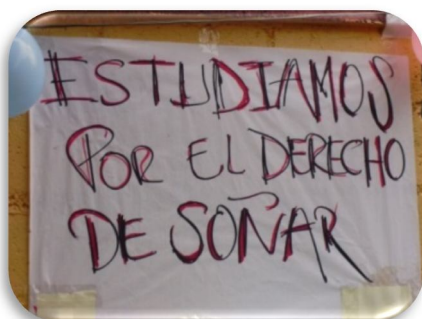 ESTUDIAMOS
POR EL DERECHO
DE SOÑAR